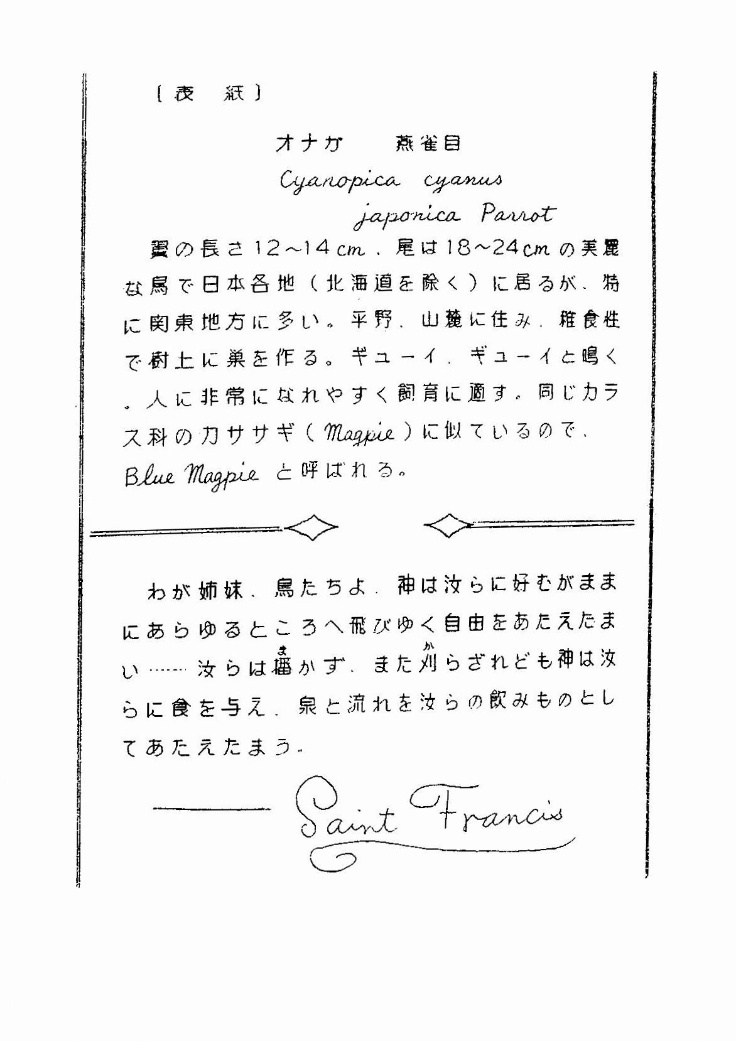 〔表 紙〕
オナガ 燕雀目
Cyanopica cyanus
japonica Parrot
翼の長さ12〜14cm、尾は18〜24cmの美麗
な鳥で日本各地(北海道を除く)に居るが、特
に関東地方に多い。平野、山麓に住み、雑食性
で樹上に巣を作る。ギューイ、ギューイと鳴く
。人に非常になれやすく飼育に適す。同じカラ
ス科のカササギ(Magpie)に似ているので、
Blue Magpie と呼ばれる。
わが姉妹、鳥たちよ、神は汝らに好むがまま
にあらゆるところへ飛びゆく自由をあたえたま
い……汝らは播かず、また刈らざれども神は汝
らに食を与え、泉と流れを汝らの飲みものとし
てあたえたまう。
Saint Francis